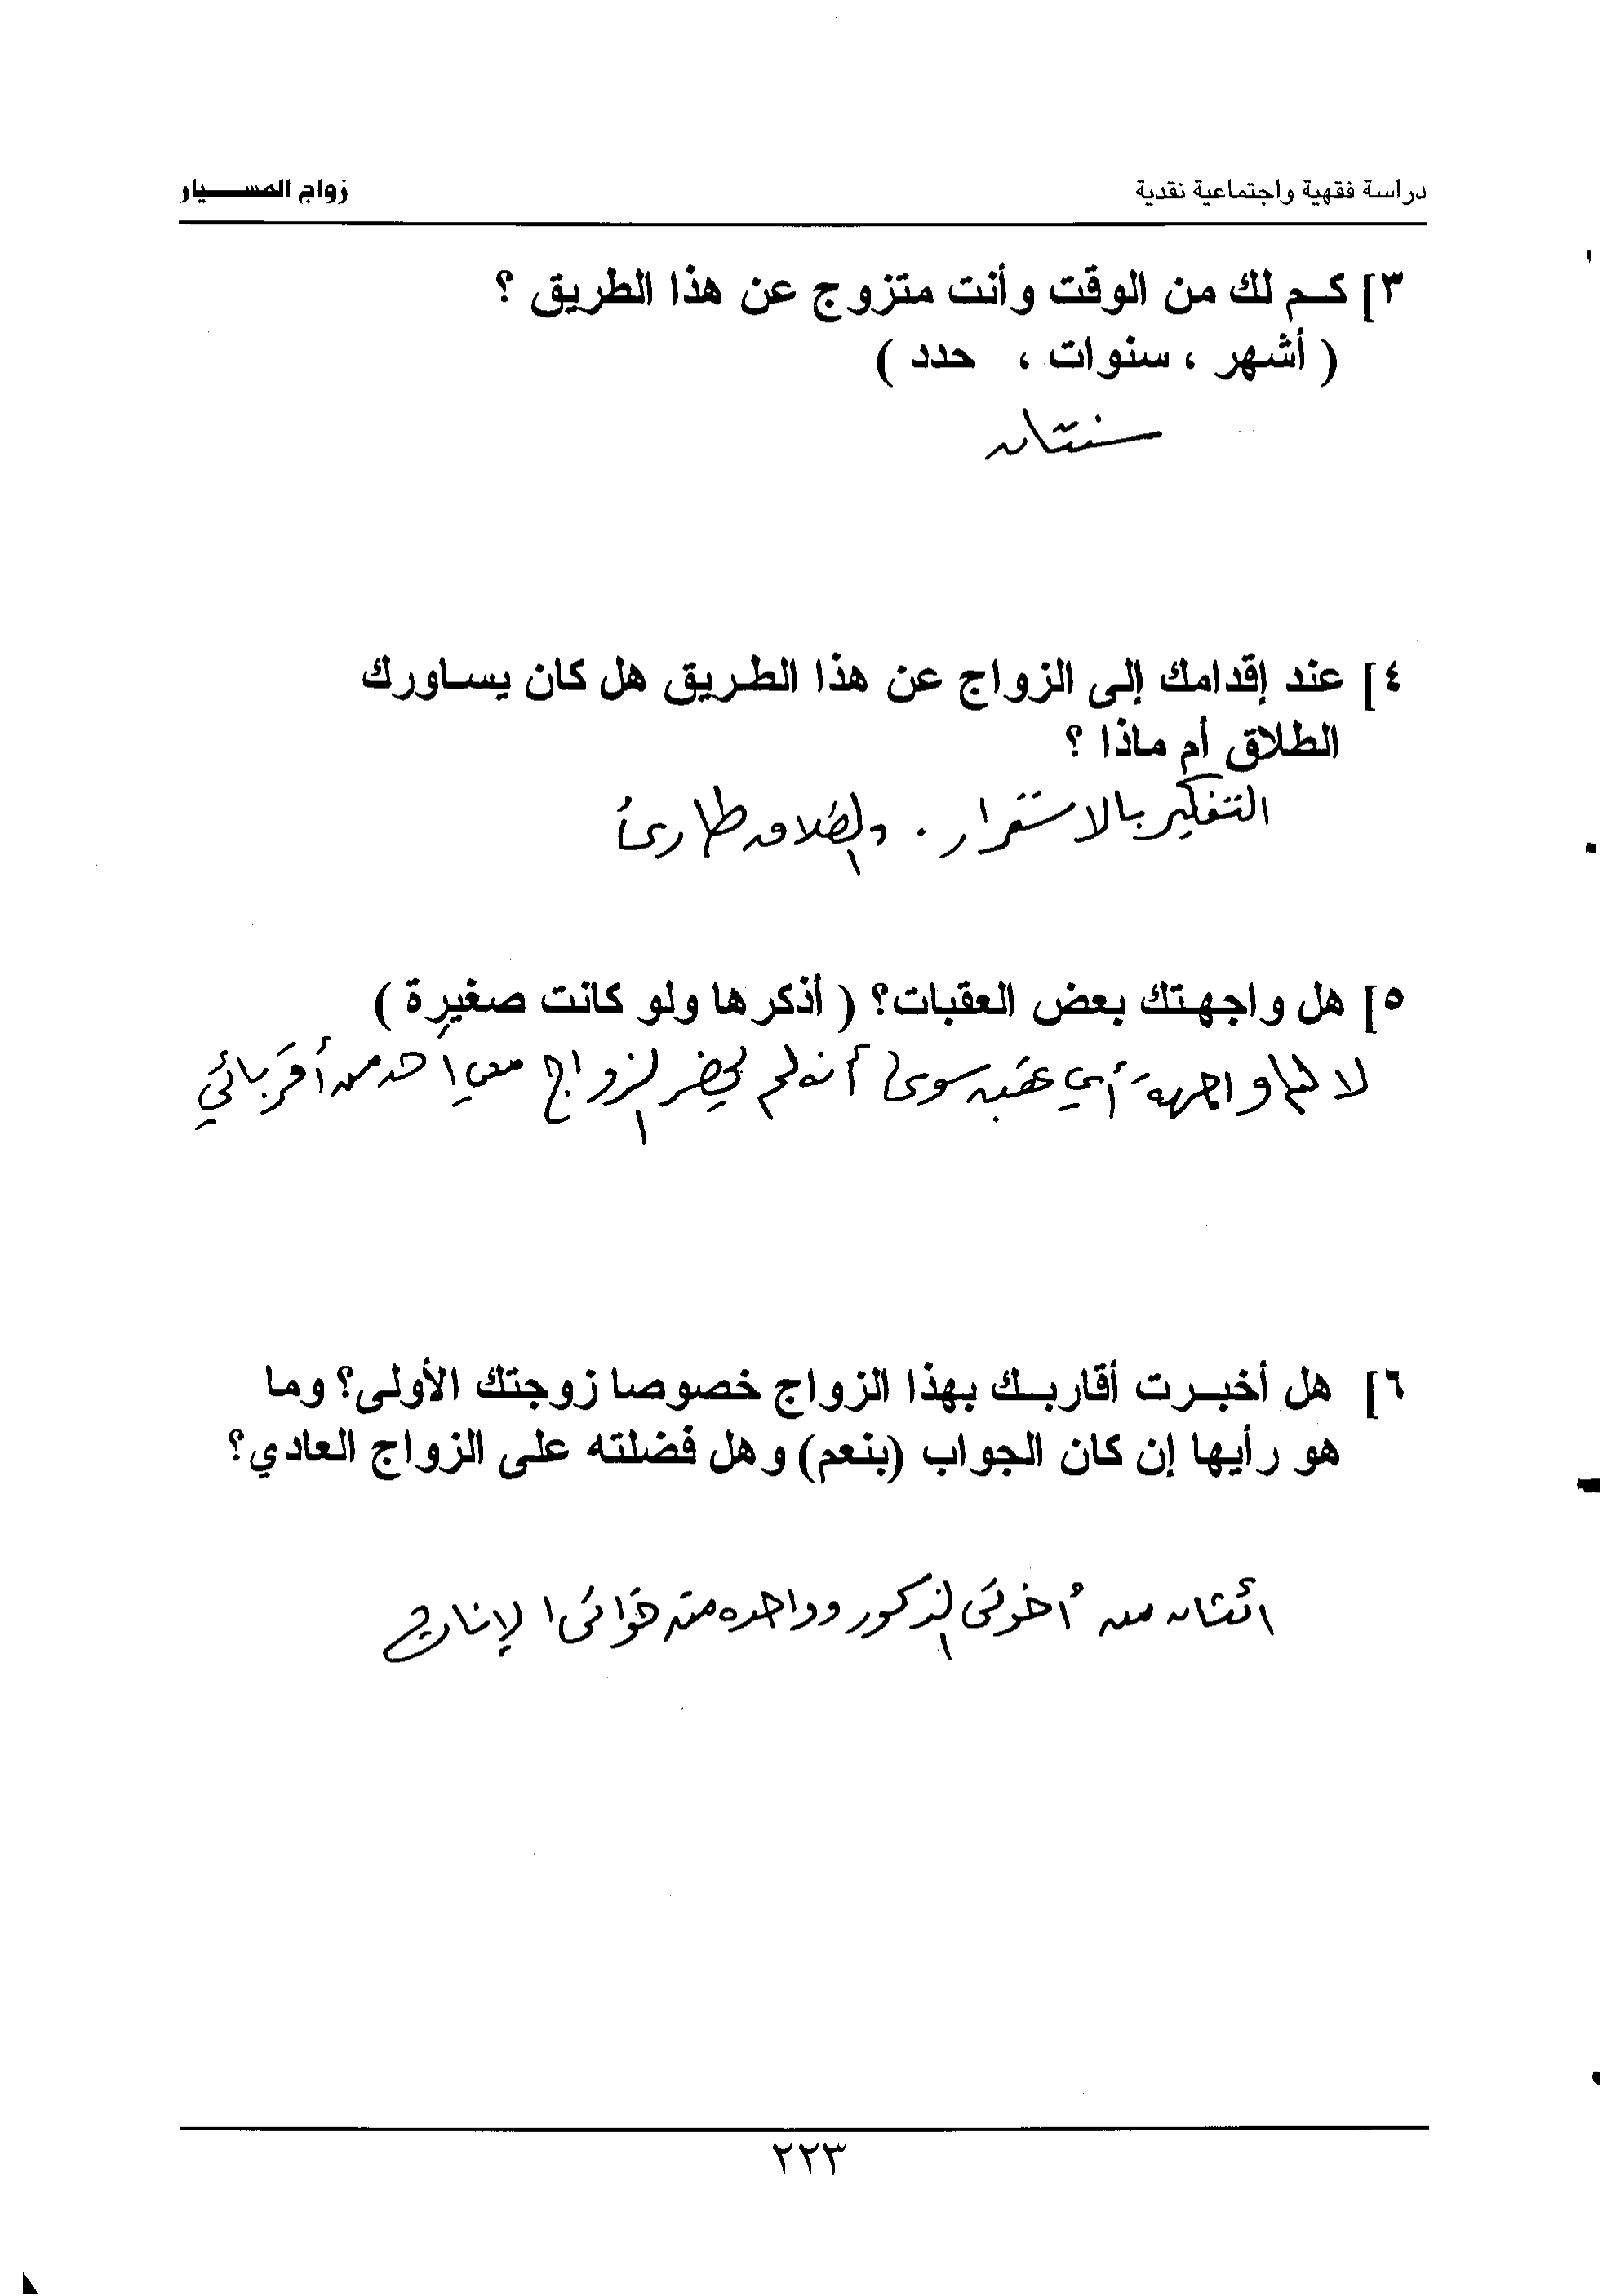 دراسة فقهية واجتماعية نقدية زواج المسيار
٣] كم لك من الوقت وأنت متزوج عن هذا الطريق ؟
( أشهر ، سنوات ، حدد )
سنتان
٤] عند إقدامك إلى الزواج عن هذا الطريق هل كان يساورك
الطلاق أم ماذا ؟
التفكير بالاستقرار . والطلاق طارئ
٥] هل واجهتك بعض العقبات؟ ( أذكرها ولو كانت صغيرة )
لا لم أواجه أي عقبه سوى أنه لم يحضر الزواج معي احد من أقربائي
٦] هل أخبرت أقاربك بهذا الزواج خصوصا زوجتك الأولى؟ وما
هو رأيها إن كان الجواب (بنعم) وهل فضلته على الزواج العادي؟
اثنان من أخوتي الذكور وواحده من خواتي الإناث
٢٢٣